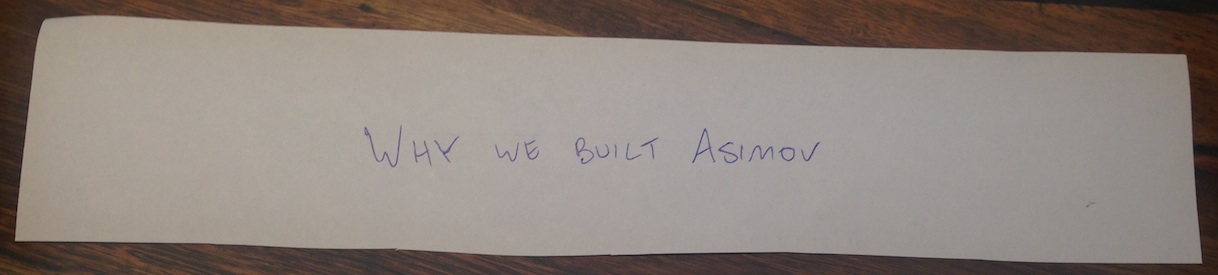 WHY WE BUILT ASIMOV